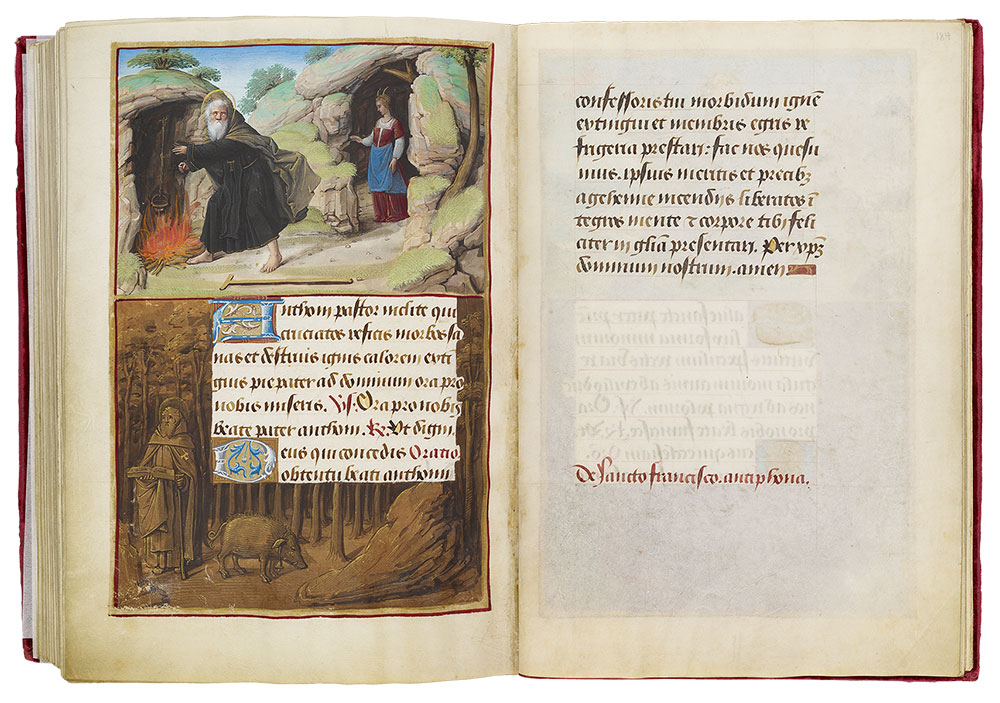 Anthoni pastor inclite qui
cruciatos reficis morbos sa
nas et destruis ignis calorem exti
guis pie pater ad dominum ora pro
nobis miseris. Vs. Ora pro nobis
beate pater anthoni. R. Ut digni.
Deus qui concedis Oratio
obtentu beati anthonii
184
confessoris tui morbidum ignē
extingui et membris egris re
frigeria prestari: fac nos quesu
mus. ipsius meritis et precibꝫ
a gehenne incendiis liberatos ī
tegros mente ⁊ corpore tibi feli
citer in gl̄ia presentari. Per xpm̄
dominum nostrum. amen.
De sancto francisco. antiphona.